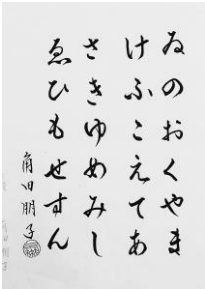 ゐのおくやま
けふこえてあ
さきゆめみし
ゑひもせすん
角田朋子